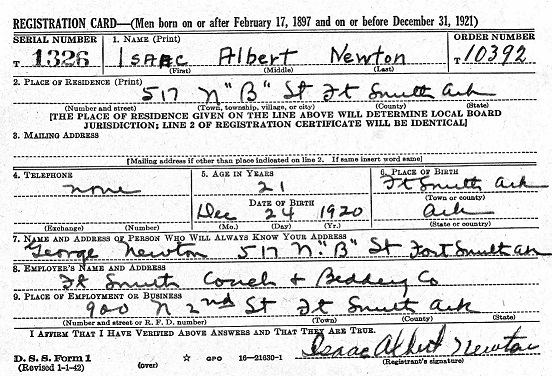 REGISTRATION CARD—(Men born on or after February 17, 1897 and on or before December 31, 1921)
SERIAL NUMBER 1. NAME (Print) ORDER NUMBER
T 1326 Isaac Albert Newton T 10392
(First) (Middle) (Last)
2. PLACE OF RESIDENCE (Print)
517 N "B" St Ft Smith Ark
(Number and street) (Town, township, village, or city) (County) (State)
[THE PLACE OF RESIDENCE GIVEN ON THE LINE ABOVE WILL DETERMINE LOCAL BOARD
JURISDICTION; LINE 2 OF REGISTRATION CERTIFICATE WILL BE IDENTICAL]
3. MAILING ADDRESS
[Mailing address if other than place indicated on line 2. If same insert word same]
4. TELEPHONE 5. AGE IN YEARS 6. PLACE OF BIRTH
none 21 Ft Smith Ark
DATE OF BIRTH (Town or county)
Dec 24 1920 Ark
(Exchange) (Number) (Mo.) (Day) (Yr.) (State or country)
7. NAME AND ADDRESS OF PERSON WHO WILL ALWAYS KNOW YOUR ADDRESS
George Newton 517 N. "B" St Fort Smith Ark
8. EMPLOYER'S NAME AND ADDRESS
Ft Smith Couch & Bedding Co
9. PLACE OF EMPLOYMENT OR BUSINESS
900 N 2nd St Ft Smith Ark
(Number and street or R. F. D. number) (Town) (County) (State)
I AFFIRM THAT I HAVE VERIFIED ABOVE ANSWERS AND THAT THEY ARE TRUE.
Isaac Albert Newton
D. S. S. Form 1 ☆ GPO 16—21630-1 (Registrant's signature)
(Revised 1-1-42) (over)